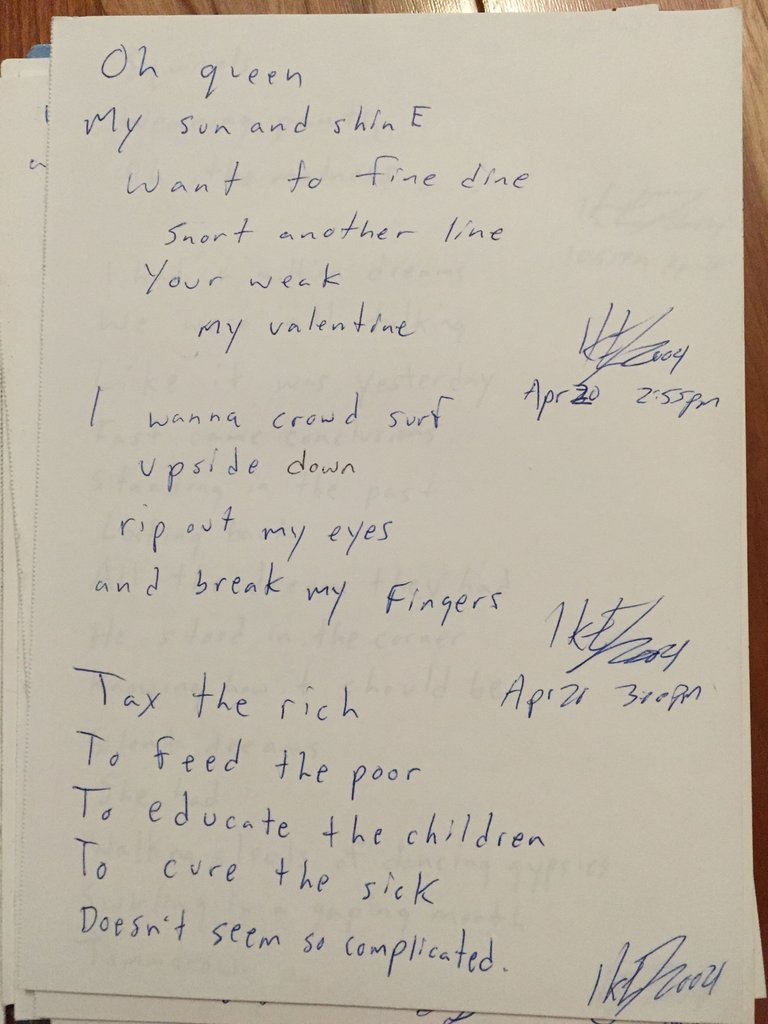 Oh queen
My sun and shinE
Want to fine dine
Snort another line
Your weak
my valentine
Apr 20 2:55pm
I wanna crowd surf
upside down
rip out my eyes
and break my Fingers
Apr 20 3:00pm
Tax the rich
To feed the poor
To educate the children
To cure the sick
Doesn't seem so complicated.